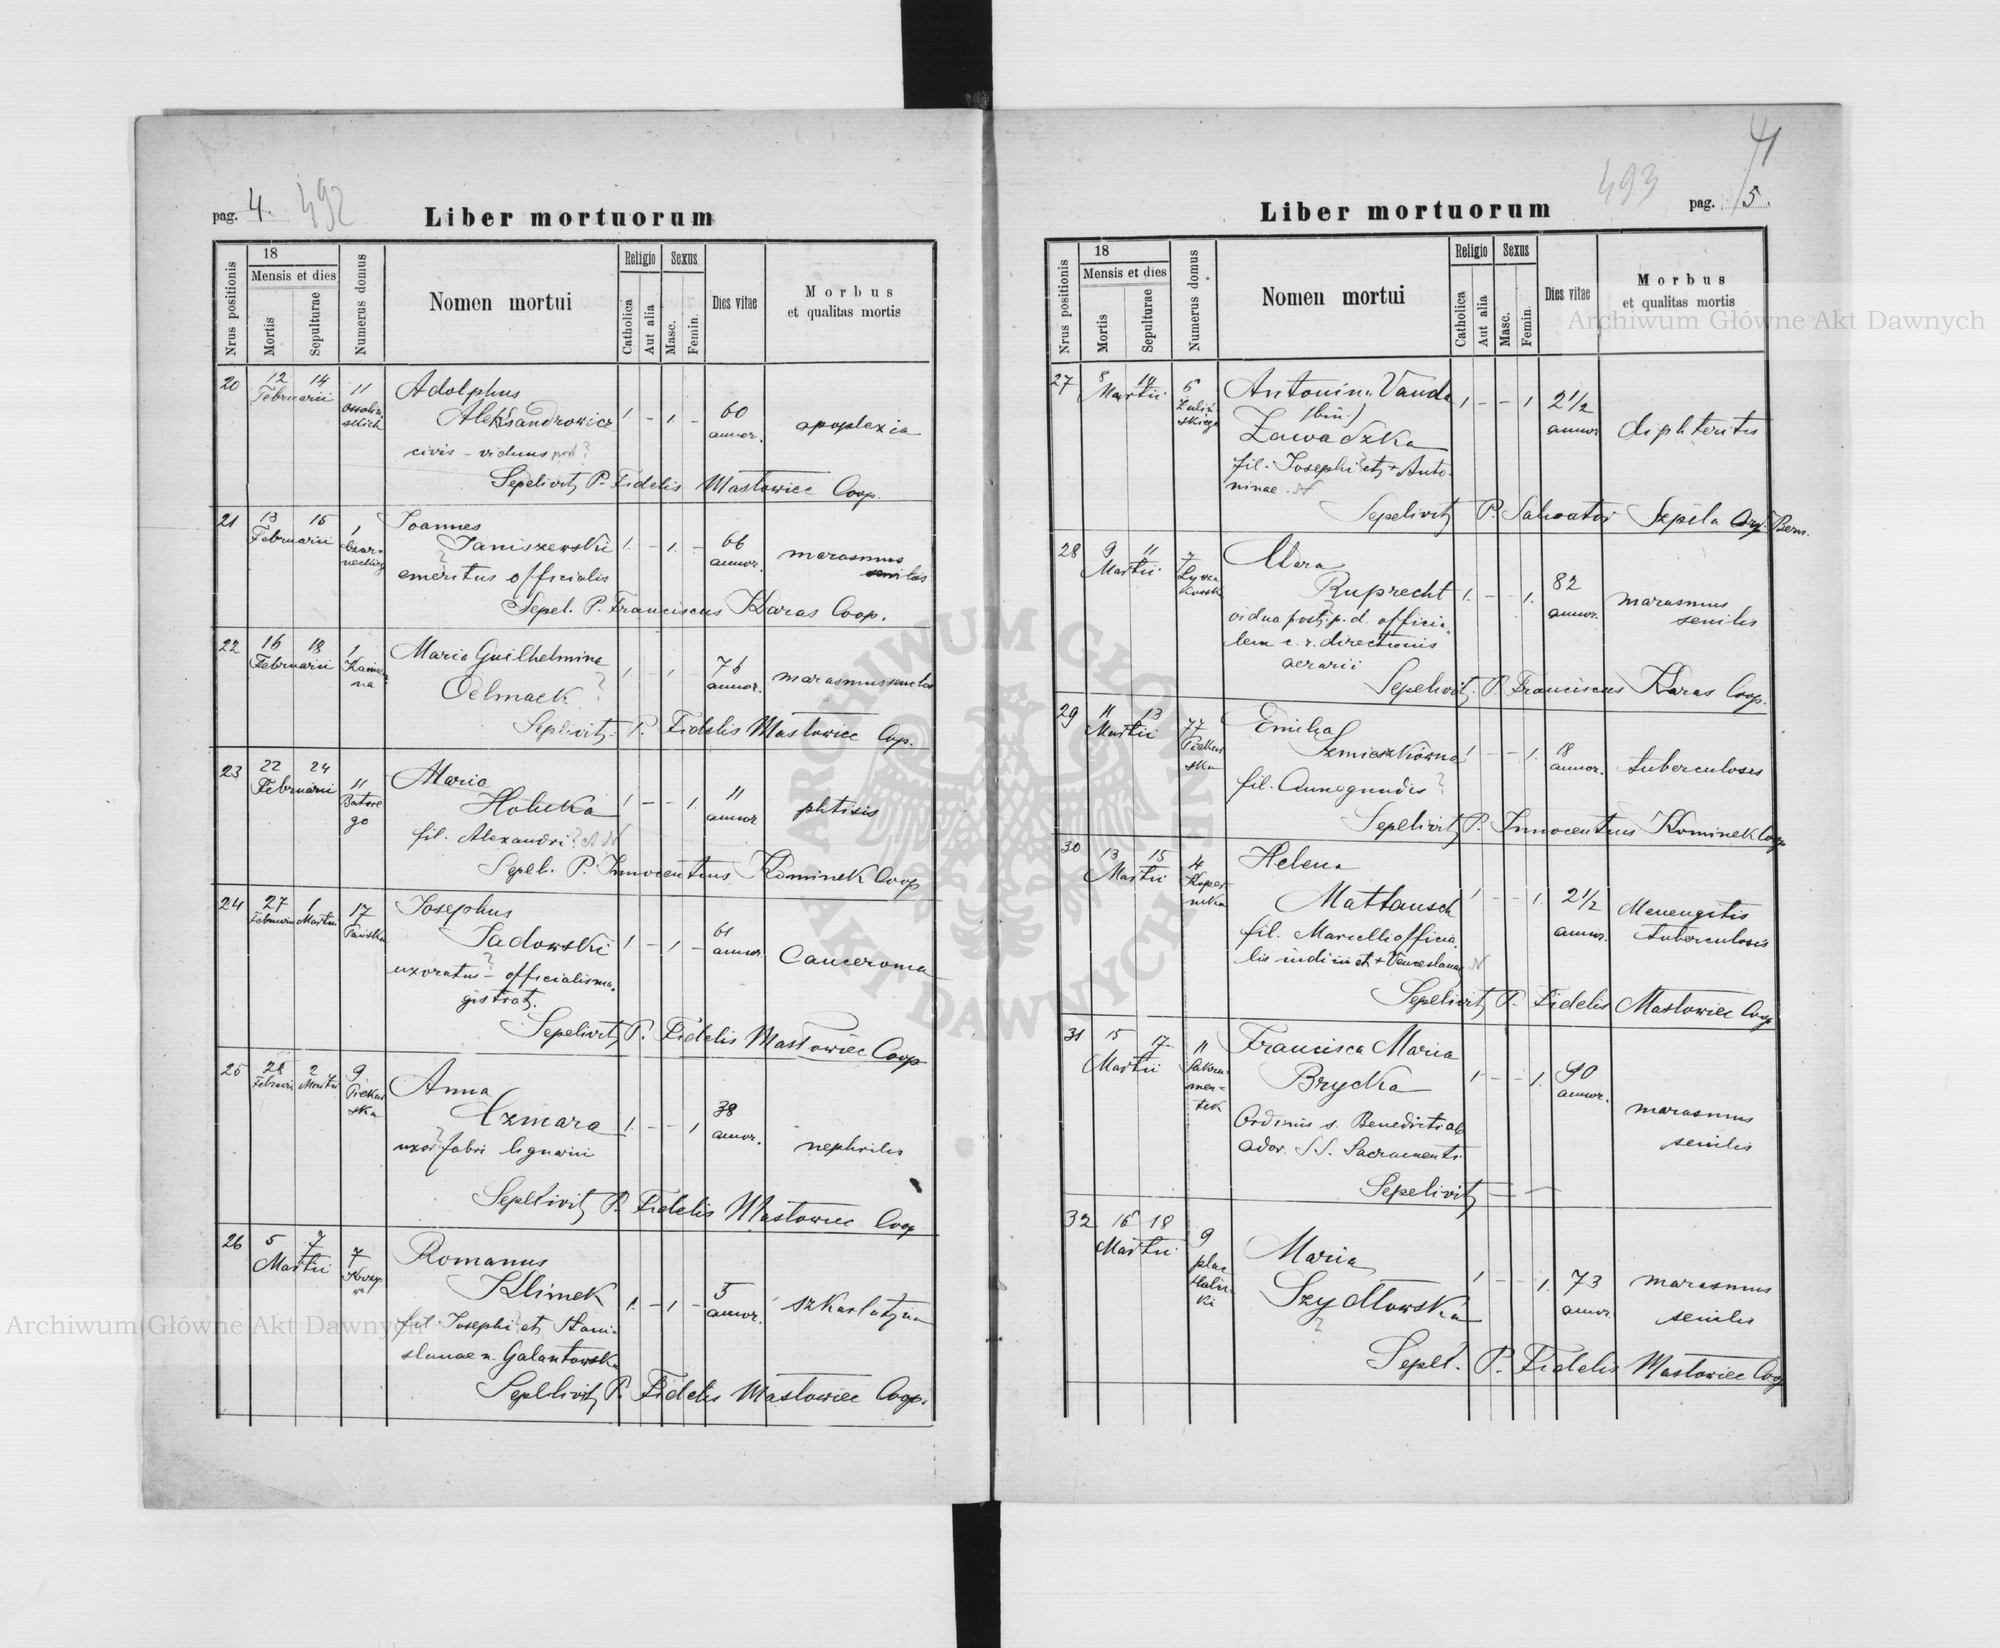 pag. 4. 492
Liber mortuorum
Nrus positionis
18
Mensis et dies
Mortis
Sepulturae
Numerus domus
Nomen mortui
Religio
Catholica
Aut alia
Sexus
Masc.
Femin.
Dies vitae
Morbus
et qualitas mortis
20 12 14 Februarii 11
Adolphus
Aleksandrowicz 1 - 1. - 60 annor. apoplexia
civis - viduus post?
Sepelivit P. Fidelis Masłowiec Coop.
21 13 15 Februarii 1 Czarneckiego
Joannes
Janiszewski 1. - 1. - 66 annor. marasmus senilis
emeritus officialis
Sepel. P. Franciscus Karas Coop.
22 16 18 Februarii 1 Kamienna
Maria Guilhelmina
Oelmack ? 76 annor. marasmus senilis
Sepelivit P. Fidelis Masłowiec Cop.
23 22 24 Februarii 11 Batorego
Maria
Holicka 1 - - 1. 11 annor phtisis
fil. Alexandri ? N
Sepel. P. Innocentius Kominek Coop
24 27 Februarii 1 Martii 17 Pańska
Josephus
Sadowski 1. - 1 - 61 annor Canceroma
uxoratus - officialis ma-
gistrat.
Sepelivit P. Fidelis Masłowiec Coop
25 28 Februarii 2 Martii 9 Piekarska
Anna
Czmara 1. - - 1 38 annor. nephritis
uxor fabri lignarii
Sepelivit P. Fidelis Masłowiec Coop
26 5 7 Martii 7
Romanus
Klimek 1. - 1 - 5 annor. szkarlatyna
fil. Josephi et Stani-
slauae n. Galantowska
Sepelivit P. Fidelis Masłowiec Coop.
41
493
pag. 5.
Liber mortuorum
Nrus positionis
18
Mensis et dies
Mortis
Sepulturae
Numerus domus
Nomen mortui
Religio
Catholica
Aut alia
Sexus
Masc.
Femin.
Dies vitae
Morbus
et qualitas mortis
27 8 Martii 6 Zulińskiego
Antonina Vanda 1 - - 1 2 1/2 annor diphteritis
(bin.)
Zawadzka
fil. Josephi et + Anto-
ninae. N
Sepelivit P. Salvator Szpila Ord. Bern.
28 9 11 Martii 7 Łyczakowska
Clara
Ruprecht 1. - - 1. 82 annor. marasmus senilis
vidua post p. d. officia-
lem c. r. directionis
aerarii
Sepelivit P. Franciscus Karas Coop.
29 11 13 Martii 77 Piekarska
Emilia
Szmieszkówna 1 - - 1. 18 annor. tuberculosis
fil. Cunegundis ?
Sepelivit P. Innocentius Kominek Coop
30 13 15 Martii 4 Kopernika
Helena
Mattausch 1 - - 1. 2 1/2 annor. Menengitis tuberculosis
fil. Marcelli officia-
lis et + Venceslauae N
Sepelivit P. Fidelis Masłowiec Coop
31 15 17 Martii 11 Sakramentek
Francisca Maria
Brycka 1 - - 1. 90 annor. marasmus senilis
Ordinis s. Benedicti ab
ador. S S. Sacramenti
Sepelivit - -
32 16 18 Martii 9 plac Halicki
Maria
Szydłowska 1 - - 1. 73 annor marasmus senilis
?
Sepel. P. Fidelis Masłowiec Coop
Archiwum Główne Akt Dawnych
Archiwum Główne Akt Dawnych
ARCHIWUM GŁÓWNE AKT DAWNYCH